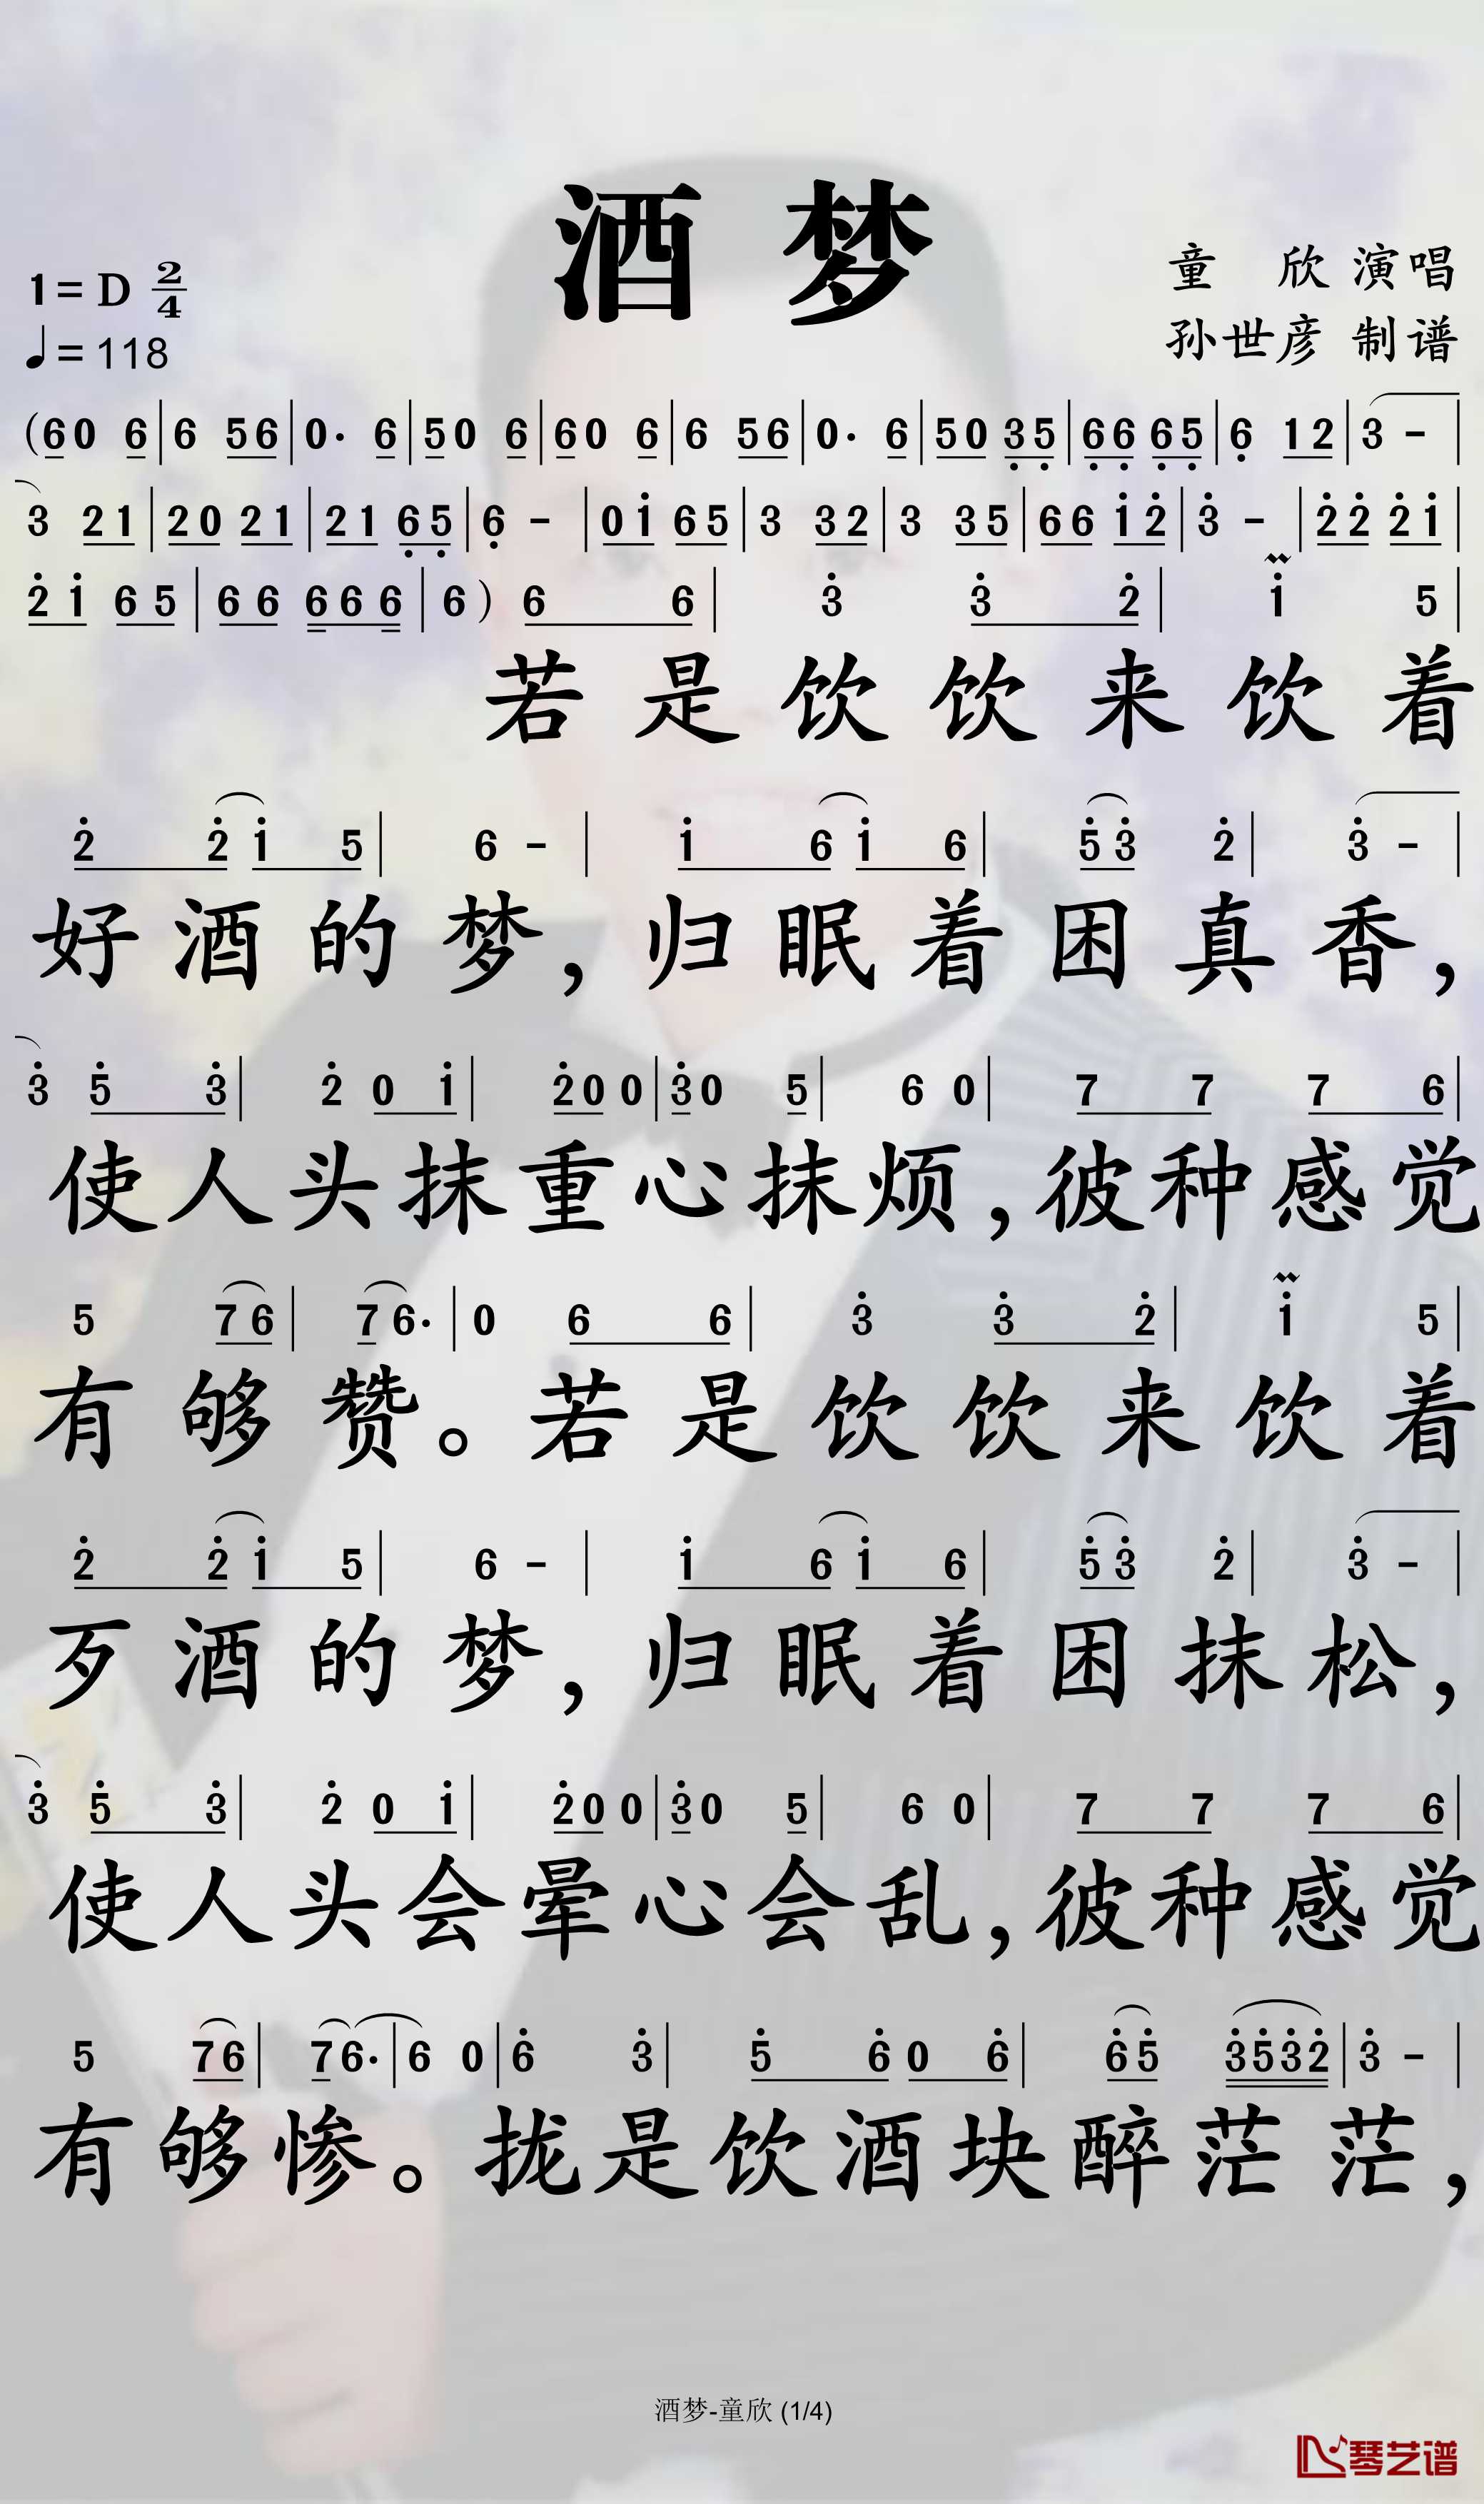 酒 梦
1=D 2/4
童 欣 演唱
♩=118
孙世彦 制谱
(60 6|6 56|0· 6|50 6|60 6|6 56|0· 6|50 3̣5̣|6̣6̣ 6̣5̣|6̣ 12|3 -|
3 21|20 21|21 6̣5̣|6̣ -|01̇ 65|3 32|3 35|66 1̇2̇|3̇ -|2̇2̇ 2̇1̇|
2̇1̇ 65|66 666|6) 6 6|3̇ 3̇ 2̇|1̇ 5|
若是饮饮来饮着
2̇ 2̇1̇ 5|6 -|1̇ 61̇ 6|5̇3̇ 2̇|3̇ -|
好酒的梦，归眠着困真香，
3̇ 5̇ 3̇|2̇ 0 1̇|2̇0 0|3̇0 5|6 0|7 7 7 6|
使人头抹重心抹烦，彼种感觉
5 76|76·|0 6 6|3̇ 3̇ 2̇|1̇ 5|
有够赞。若是饮饮来饮着
2̇ 2̇1̇ 5|6 -|1̇ 61̇ 6|5̇3̇ 2̇|3̇ -|
歹酒的梦，归眠着困抹松，
3̇ 5̇ 3̇|2̇ 0 1̇|2̇0 0|3̇0 5|6 0|7 7 7 6|
使人头会晕心会乱，彼种感觉
5 76|76·|6 0|6̇ 3̇|5̇ 6̇ 0 6̇|6̇5̇ 3̇5̇3̇2̇|3̇ -|
有够惨。拢是饮酒块醉茫茫，
酒梦-童欣 (1/4)
琴艺谱